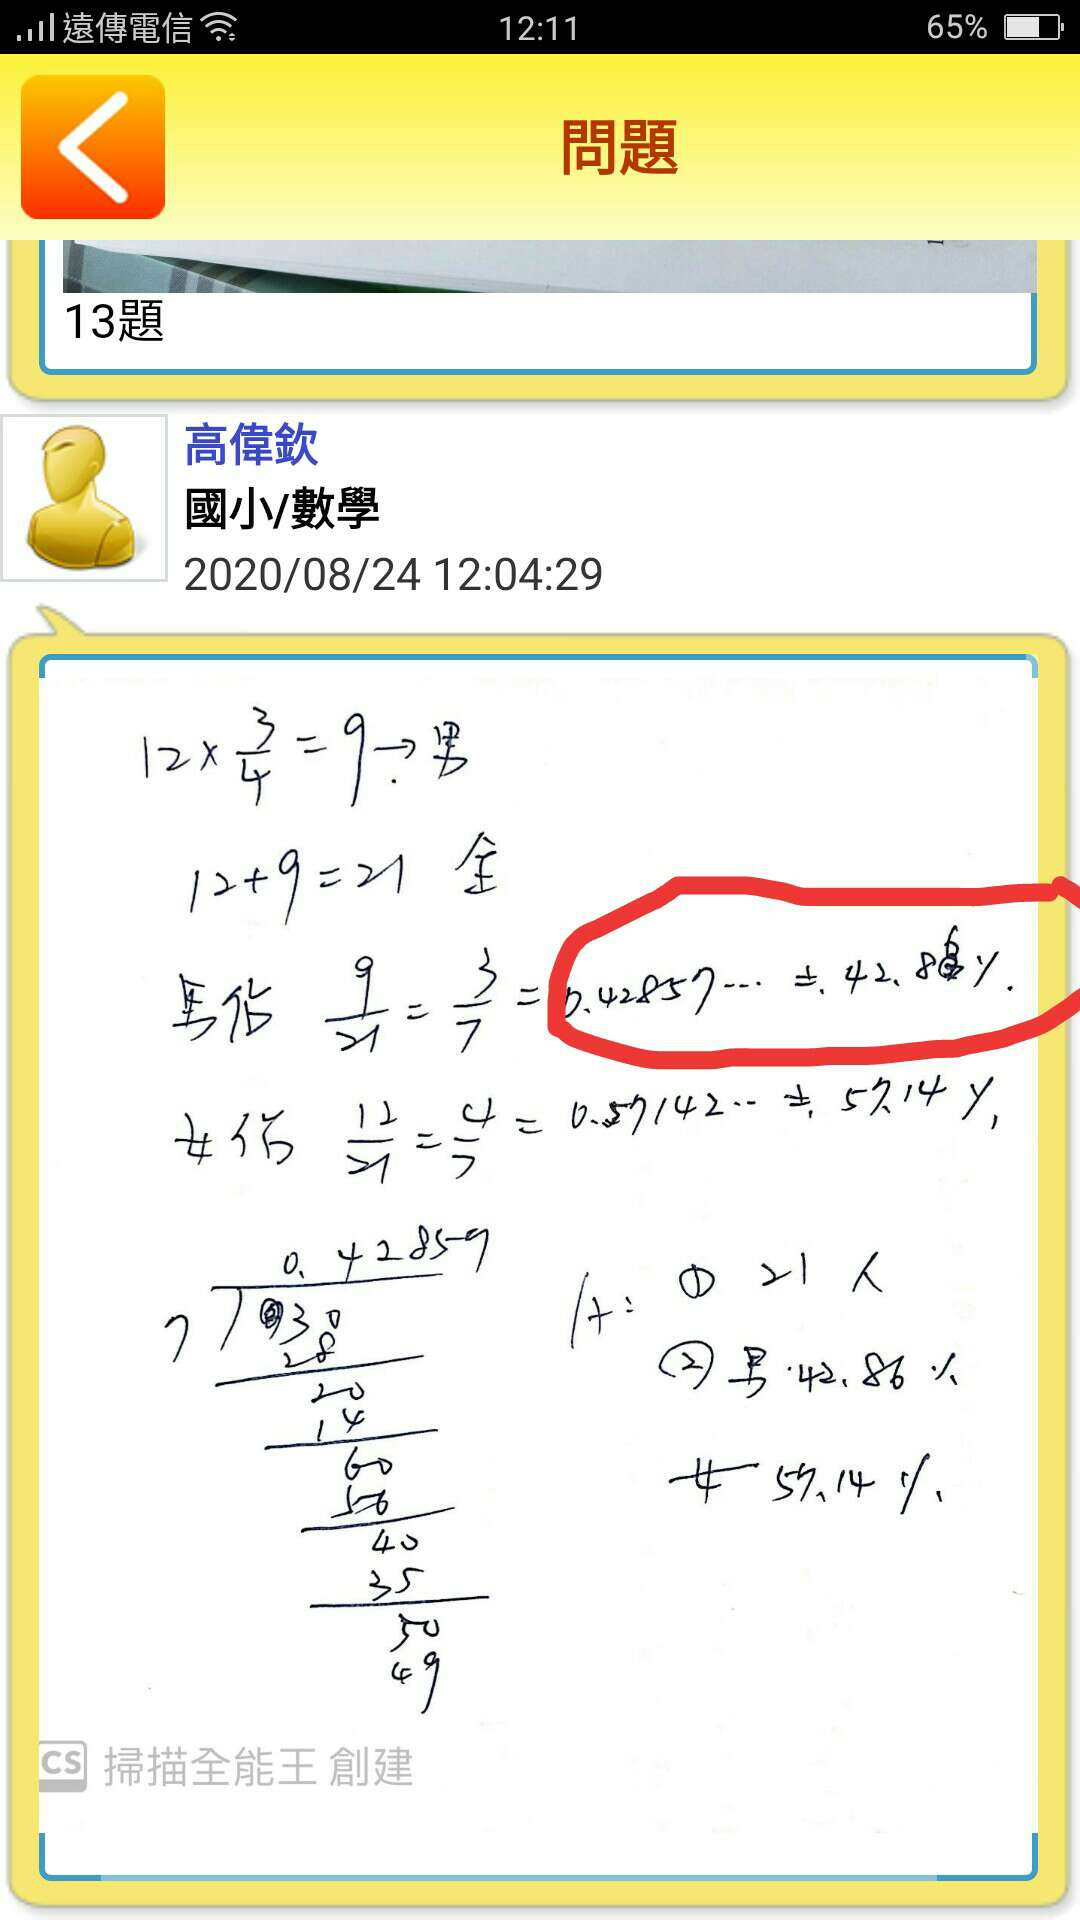 遠傳電信 12:11 65%
問題
13題
高偉欽
國小/數學
2020/08/24 12:04:29
12×3/4=9→男
12+9=21 全
男佔 9/21=3/7=0.42857... ≒ 42.86%
女佔 12/21=4/7=0.57142.. ≒ 57.14%
0.42857
7 30
28
20
14
60
56
40
35
50
49
A: ① 21人
② 男 42.86%
女 57.14%
CS 掃描全能王 創建